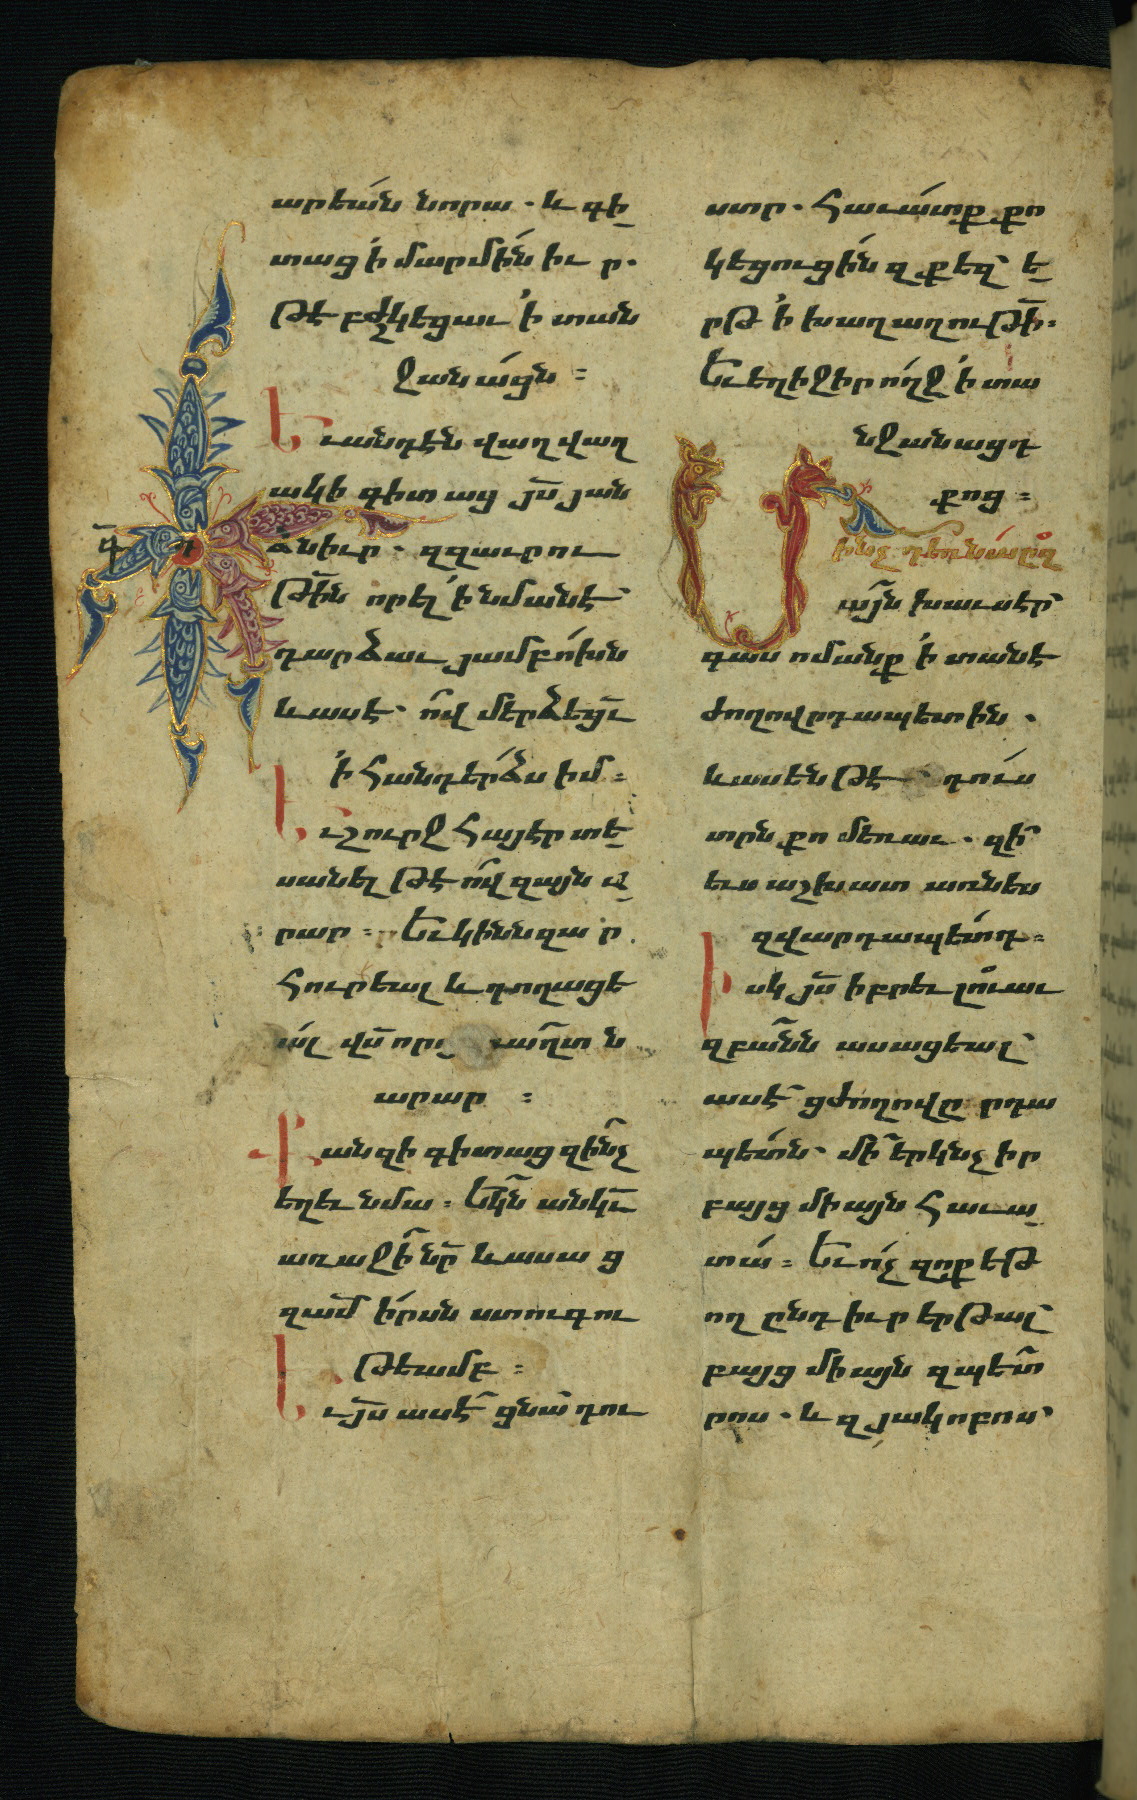 արեան նորա. և գի
տաց ՛ի մարմին իւր.
թէ բժշկեցաւ ՛ի տան
ջանացն։
Եւ անդէն վաղվաղ
ակի գիտաց յս յան
ձնիւր. զզաւրու
թին որել ՛ի նմանէ՝
դարձաւ յամբոխն
և ասէ՝ ով մերձեցաւ
՛ի հանդերձս իմ։
Եւ շուրջ հայէր տե
սանել թէ ով զայն ա
րար։ Եւ կինն զար
հուրեալ և դողացե
ալ վս որ
արար։
քանզի գիտաց զինչ
եղև նմա։ Եկն անկաւ
առաջի նր և ասաց
զամ իրսն ստուգու
թեամբ։
Եւ յս ասէ ցնա դու
ստր. հաւատք քո
կեցուցին զքեզ՝ ե
րթ ՛ի խաղաղութի։
Եւ եղիջիր ողջ ՛ի տա
նջանացդ
քոց։
այն խաւսէր՝
գան ոմանք ՛ի տանէ
ժողովրդապետին.
և ասեն թէ դուս
տրն քո մեռաւ. զի՞
ևս աշխատ առնես
զվարդապետդ։
Իսկ յս իբրև լուաւ
զբանն ասացեալ՝
ասէ ցժողովը րդա
պետն՝ մի երկնչիր
բայց միայն հաւա
տա։ Եւ ոչ զոք եթ
ող ընդ իւր երթալ՝
բայց միայն զպետ
րոս. և զյակոբոս՝